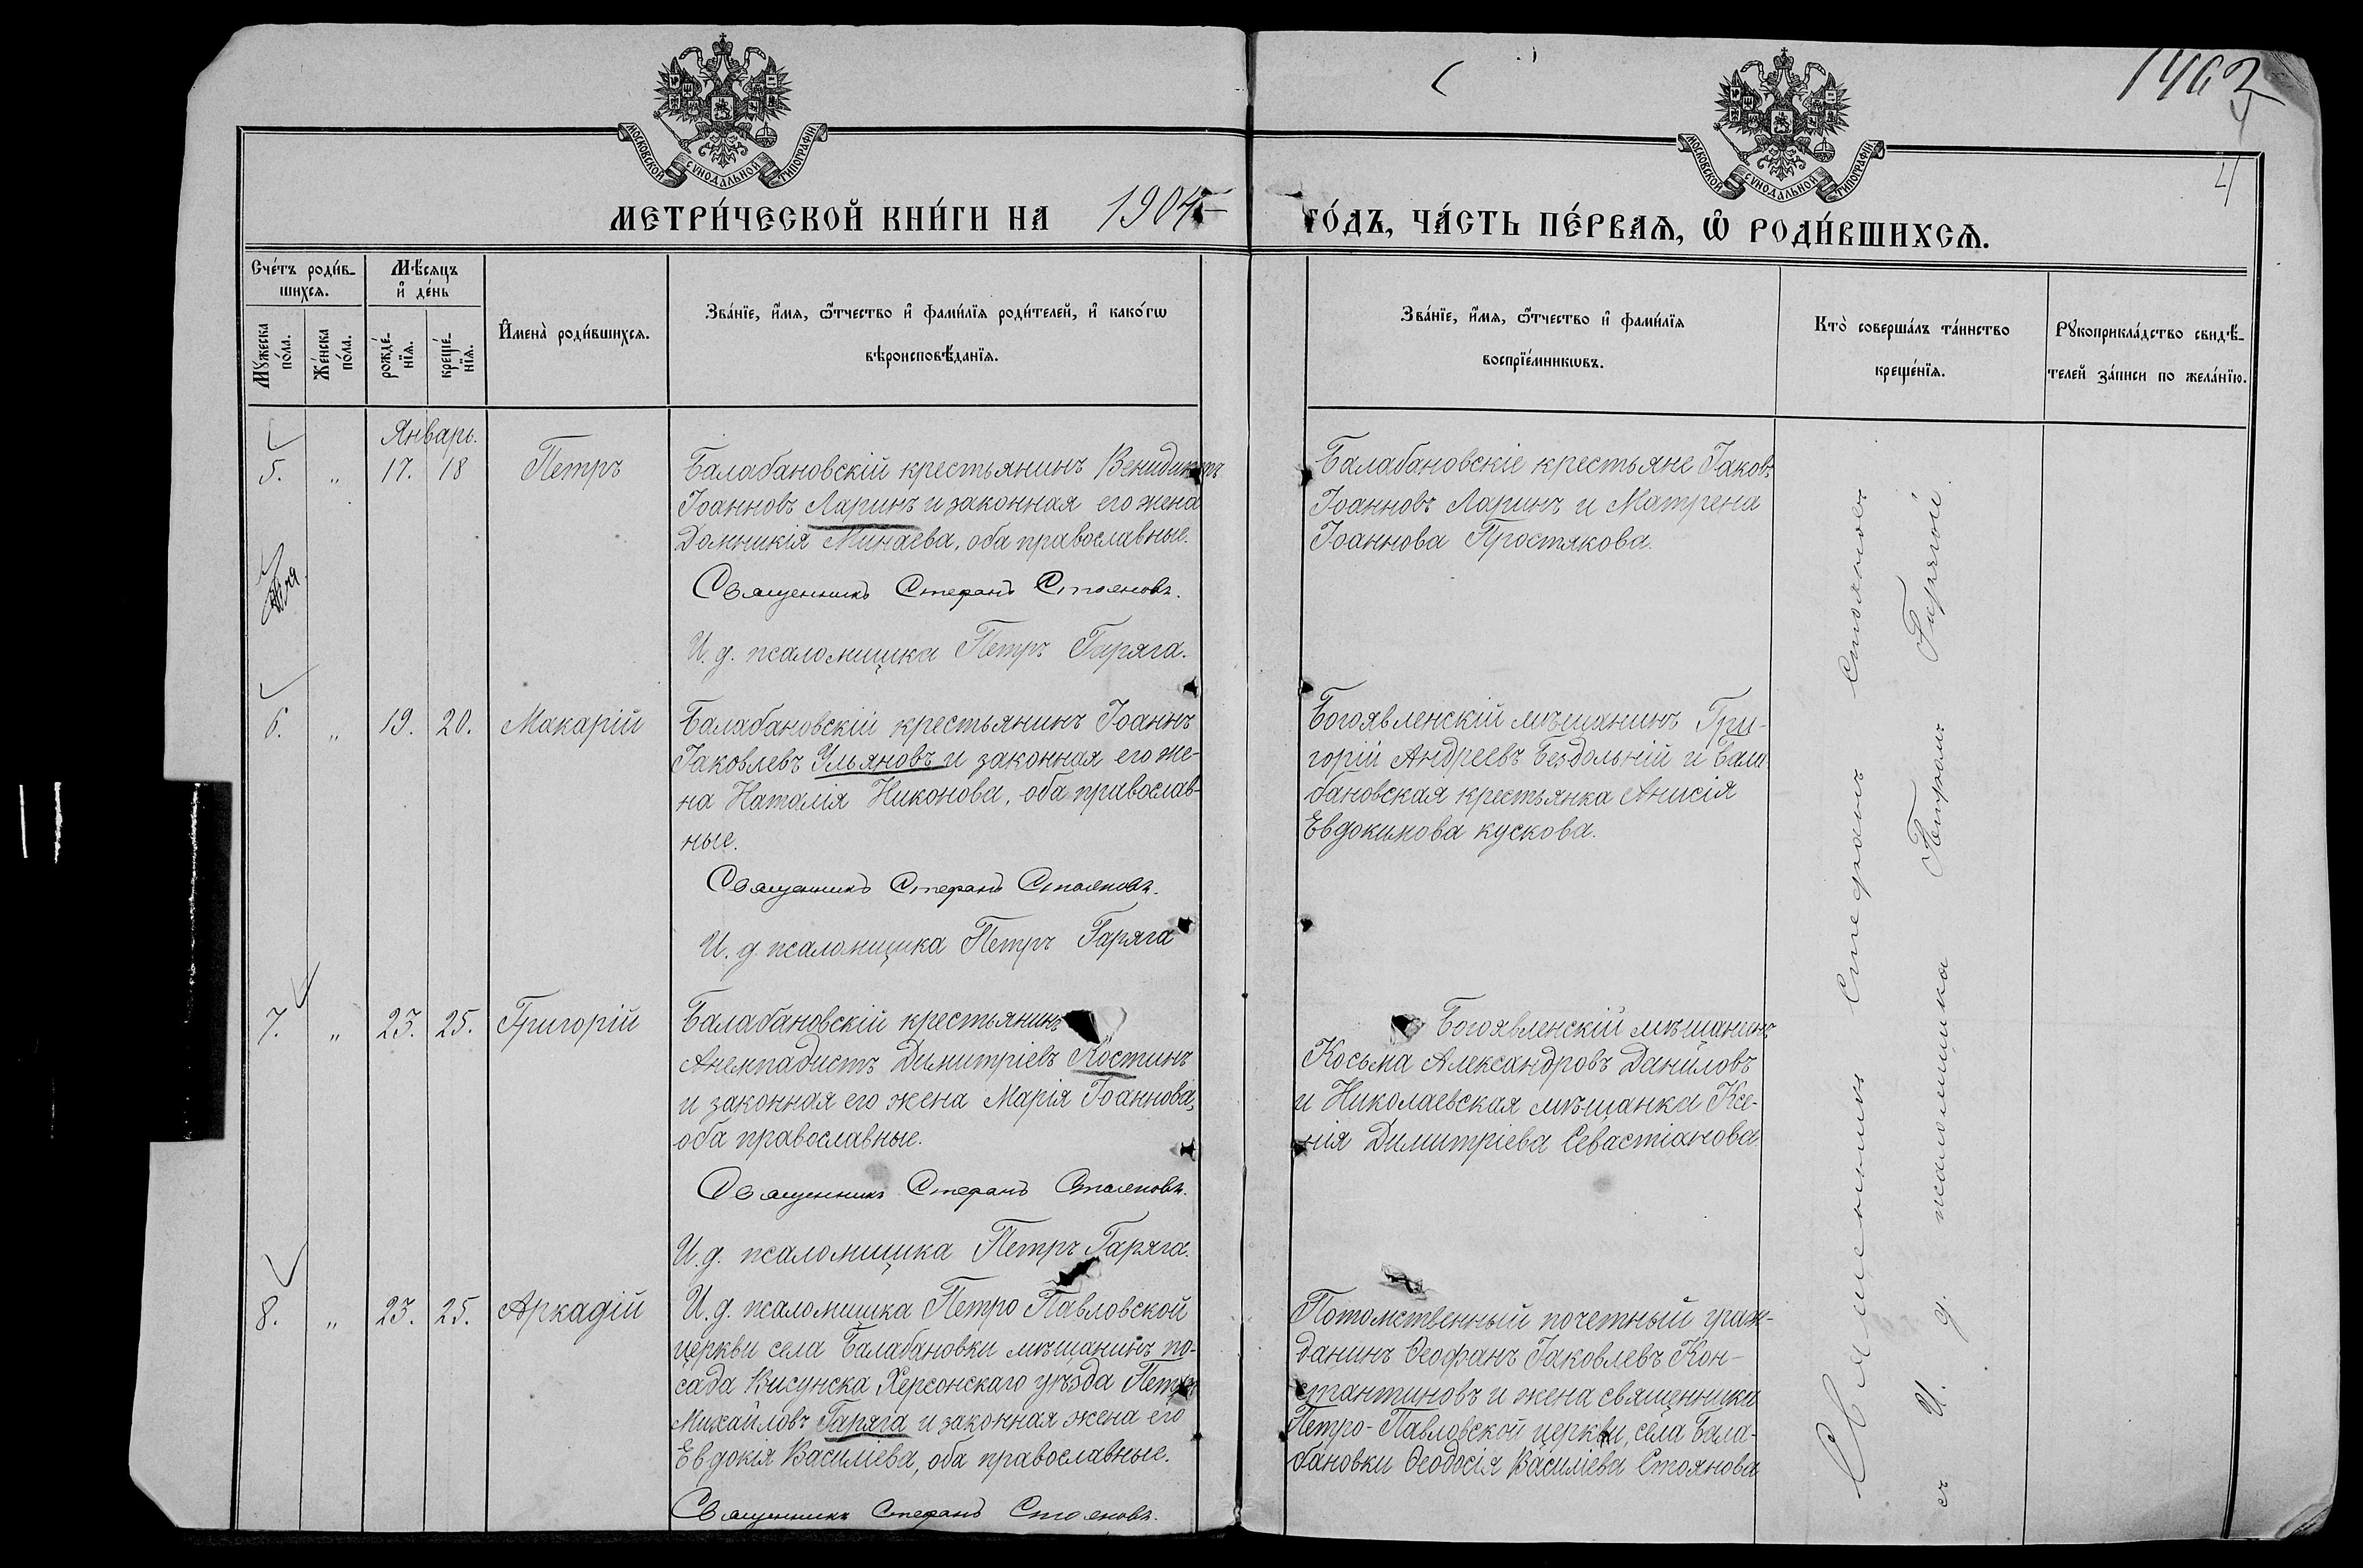 1462
4
МОСКОВСКОЙ СУНОДАЛЬНОЙ ТИПОГРАФІИ
МОСКОВСКОЙ СУНОДАЛЬНОЙ ТИПОГРАФІИ
МЕТРИ́ЧЕСКОЙ КНИ́ГИ НА 1904
ГО́ДЪ, ЧА́СТЬ ПЕ́РВАѦ, Ѡ҆ РОДИ́ВШИХСѦ.
Сче́тъ роди́в-
шихсѧ.
Мꙋ́жеска
по́ла.
Же́нска
по́ла.
Мѣ́сѧцъ
и҆ де́нь
рожде́-
нїѧ.
креще́-
нїѧ.
И҆мена̀ роди́вшихсѧ.
Зва́нїе, и҆́мѧ, ѻ҆́тчество и҆ фами́лїѧ роди́телей, и҆ како́гѡ
вѣроисповѣ́данїѧ.
Зва́нїе, и҆́мѧ, ѻ҆́тчество и҆ фами́лїѧ
воспрїе́мникѡвъ.
Кто̀ соверша́лъ та́инство
креще́нїѧ.
Рꙋкоприкла́дство свидѣ́-
телей за́писи по жела́нїю.
Январь.
5. „ 17. 18 Петръ
Балабановскій крестьянинъ Венидиктъ
Іоанновъ Ларинъ и законная его жена
Домникія Минаева, оба православные.
Священникъ Стефанъ Стояновъ.
И. д. псаломщика Петръ Гаряга.
Балабановскіе крестьяне Іаковъ
Іоанновъ Ларинъ и Матрена
Іоаннова Простякова.
6. „ 19. 20. Макарій
Балабановскій крестьянинъ Іоаннъ
Іаковлевъ Ульяновъ и законная его же-
на Наталія Никонова, оба православ-
ные.
Священникъ Стефанъ Стояновъ.
И. д. псаломщика Петръ Гаряга
Богоявленскій мѣщанинъ Гри-
горій Андреевъ Бездольній и Бала-
бановская крестьянка Анисія
Евдокимова кускова.
7. „ 23. 25. Григорій
Балабановскій крестьянинъ
Анемпадистъ Димитріевъ Костинъ
и законная его жена Марія Іоаннова,
оба православные.
Священникъ Стефанъ Стояновъ.
И. д. псаломщика Петръ Гаряга.
Богоявленскій мѣщанинъ
Косьма Александровъ Даниловъ
и Николаевская мѣщанка Ксе-
нія Димитріева Севастіанова
8. „ 23. 25. Аркадій
И. д. псаломщика Петро Павловской
церкви села Балабановки мѣщанинъ по-
сада Висунска Херсонскаго уѣзда Петръ
Михайловъ Гаряга и законная жена его
Евдокія Василіева, оба православные.
Священникъ Стефанъ Стояновъ.
Потомственный почетный граж-
данинъ Ѳеофанъ Іаковлевъ Кон-
стантиновъ и жена священника
Петро-Павловской церкви, села Бала-
бановки Ѳеодосія Василіева Стоянова
Священникъ Стефанъ Стояновъ
съ И. д. псаломщика Петромъ Гарягой.